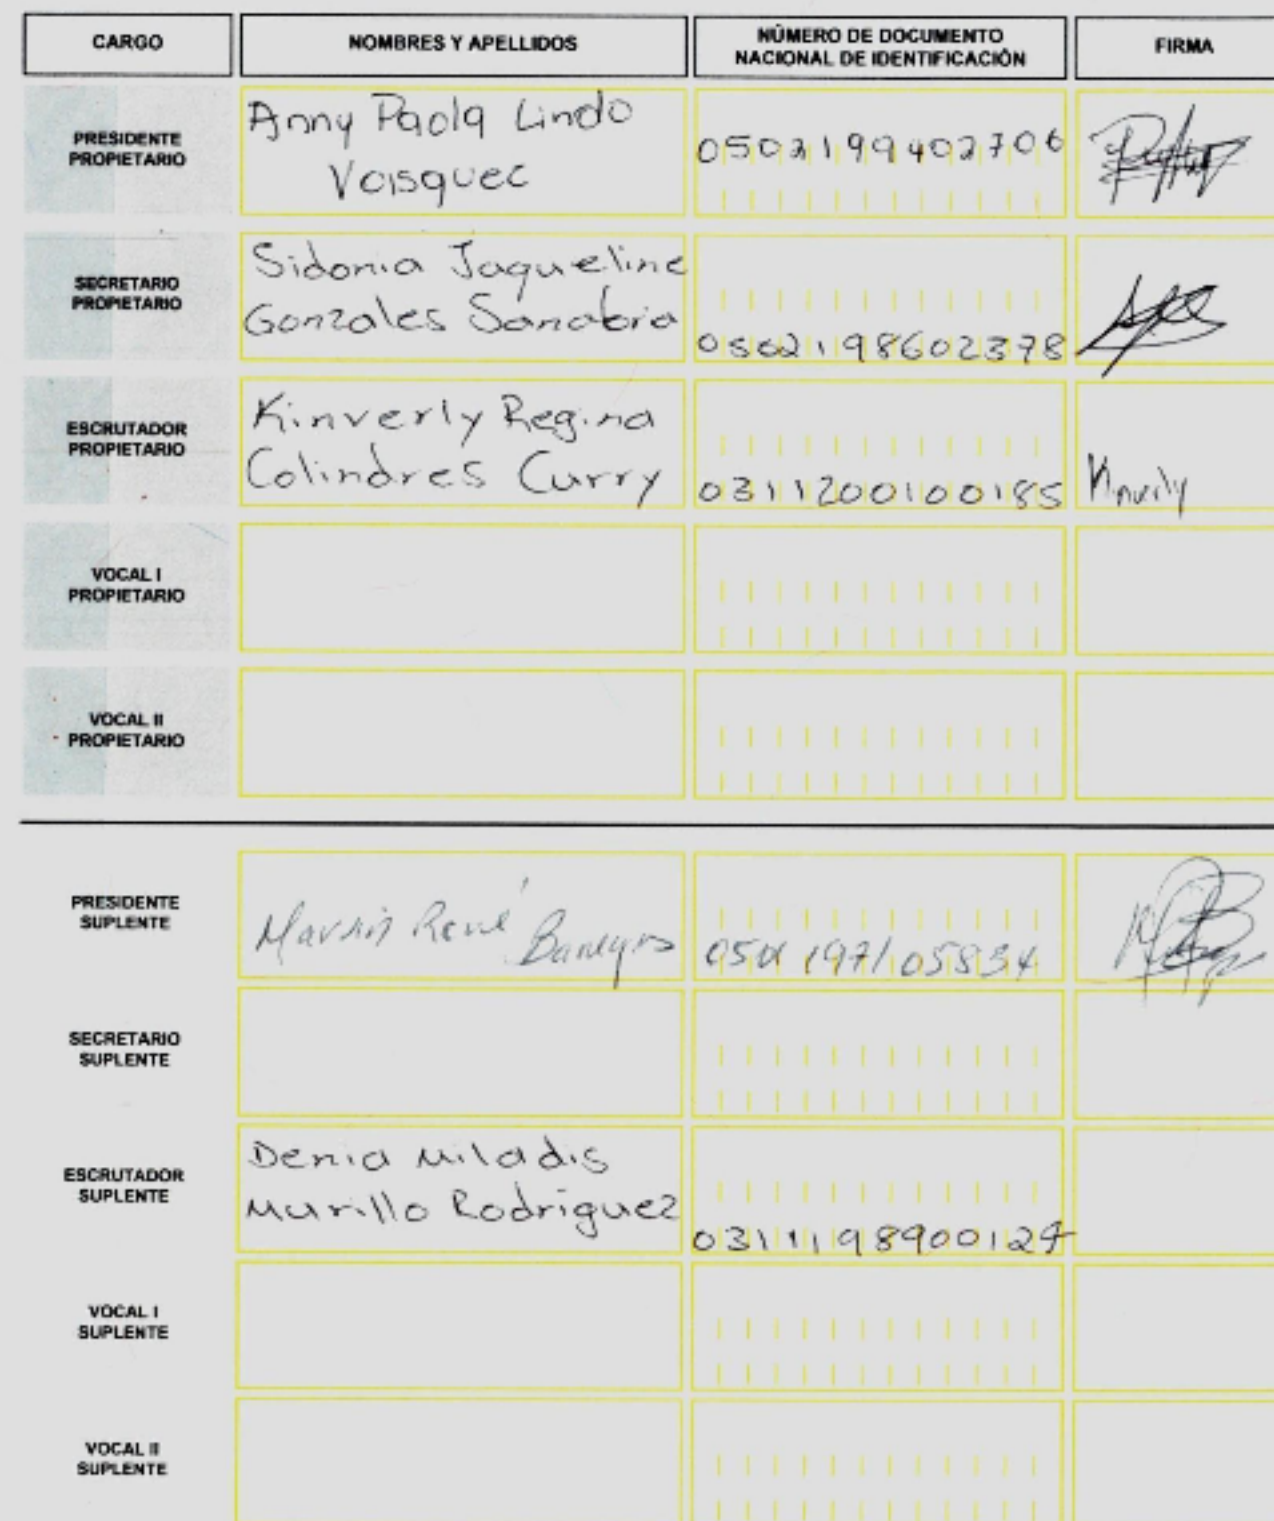 CARGO
NOMBRES Y APELLIDOS
NÚMERO DE DOCUMENTO
NACIONAL DE IDENTIFICACIÓN
FIRMA
PRESIDENTE
PROPIETARIO
Anny Paola Lindo
Vasquec
0502199402706
SECRETARIO
PROPIETARIO
Sidonia Jaqueline
Gonzales Sanabria
0502198602378
ESCRUTADOR
PROPIETARIO
Kinverly Regina
Colindres Curry
0311200100185
Kinverly
VOCAL I
PROPIETARIO
VOCAL II
PROPIETARIO
PRESIDENTE
SUPLENTE
Marvin René Banegas
SECRETARIO
SUPLENTE
ESCRUTADOR
SUPLENTE
Denia Miladis
Murillo Rodriguez
0311198900124
VOCAL I
SUPLENTE
VOCAL II
SUPLENTE